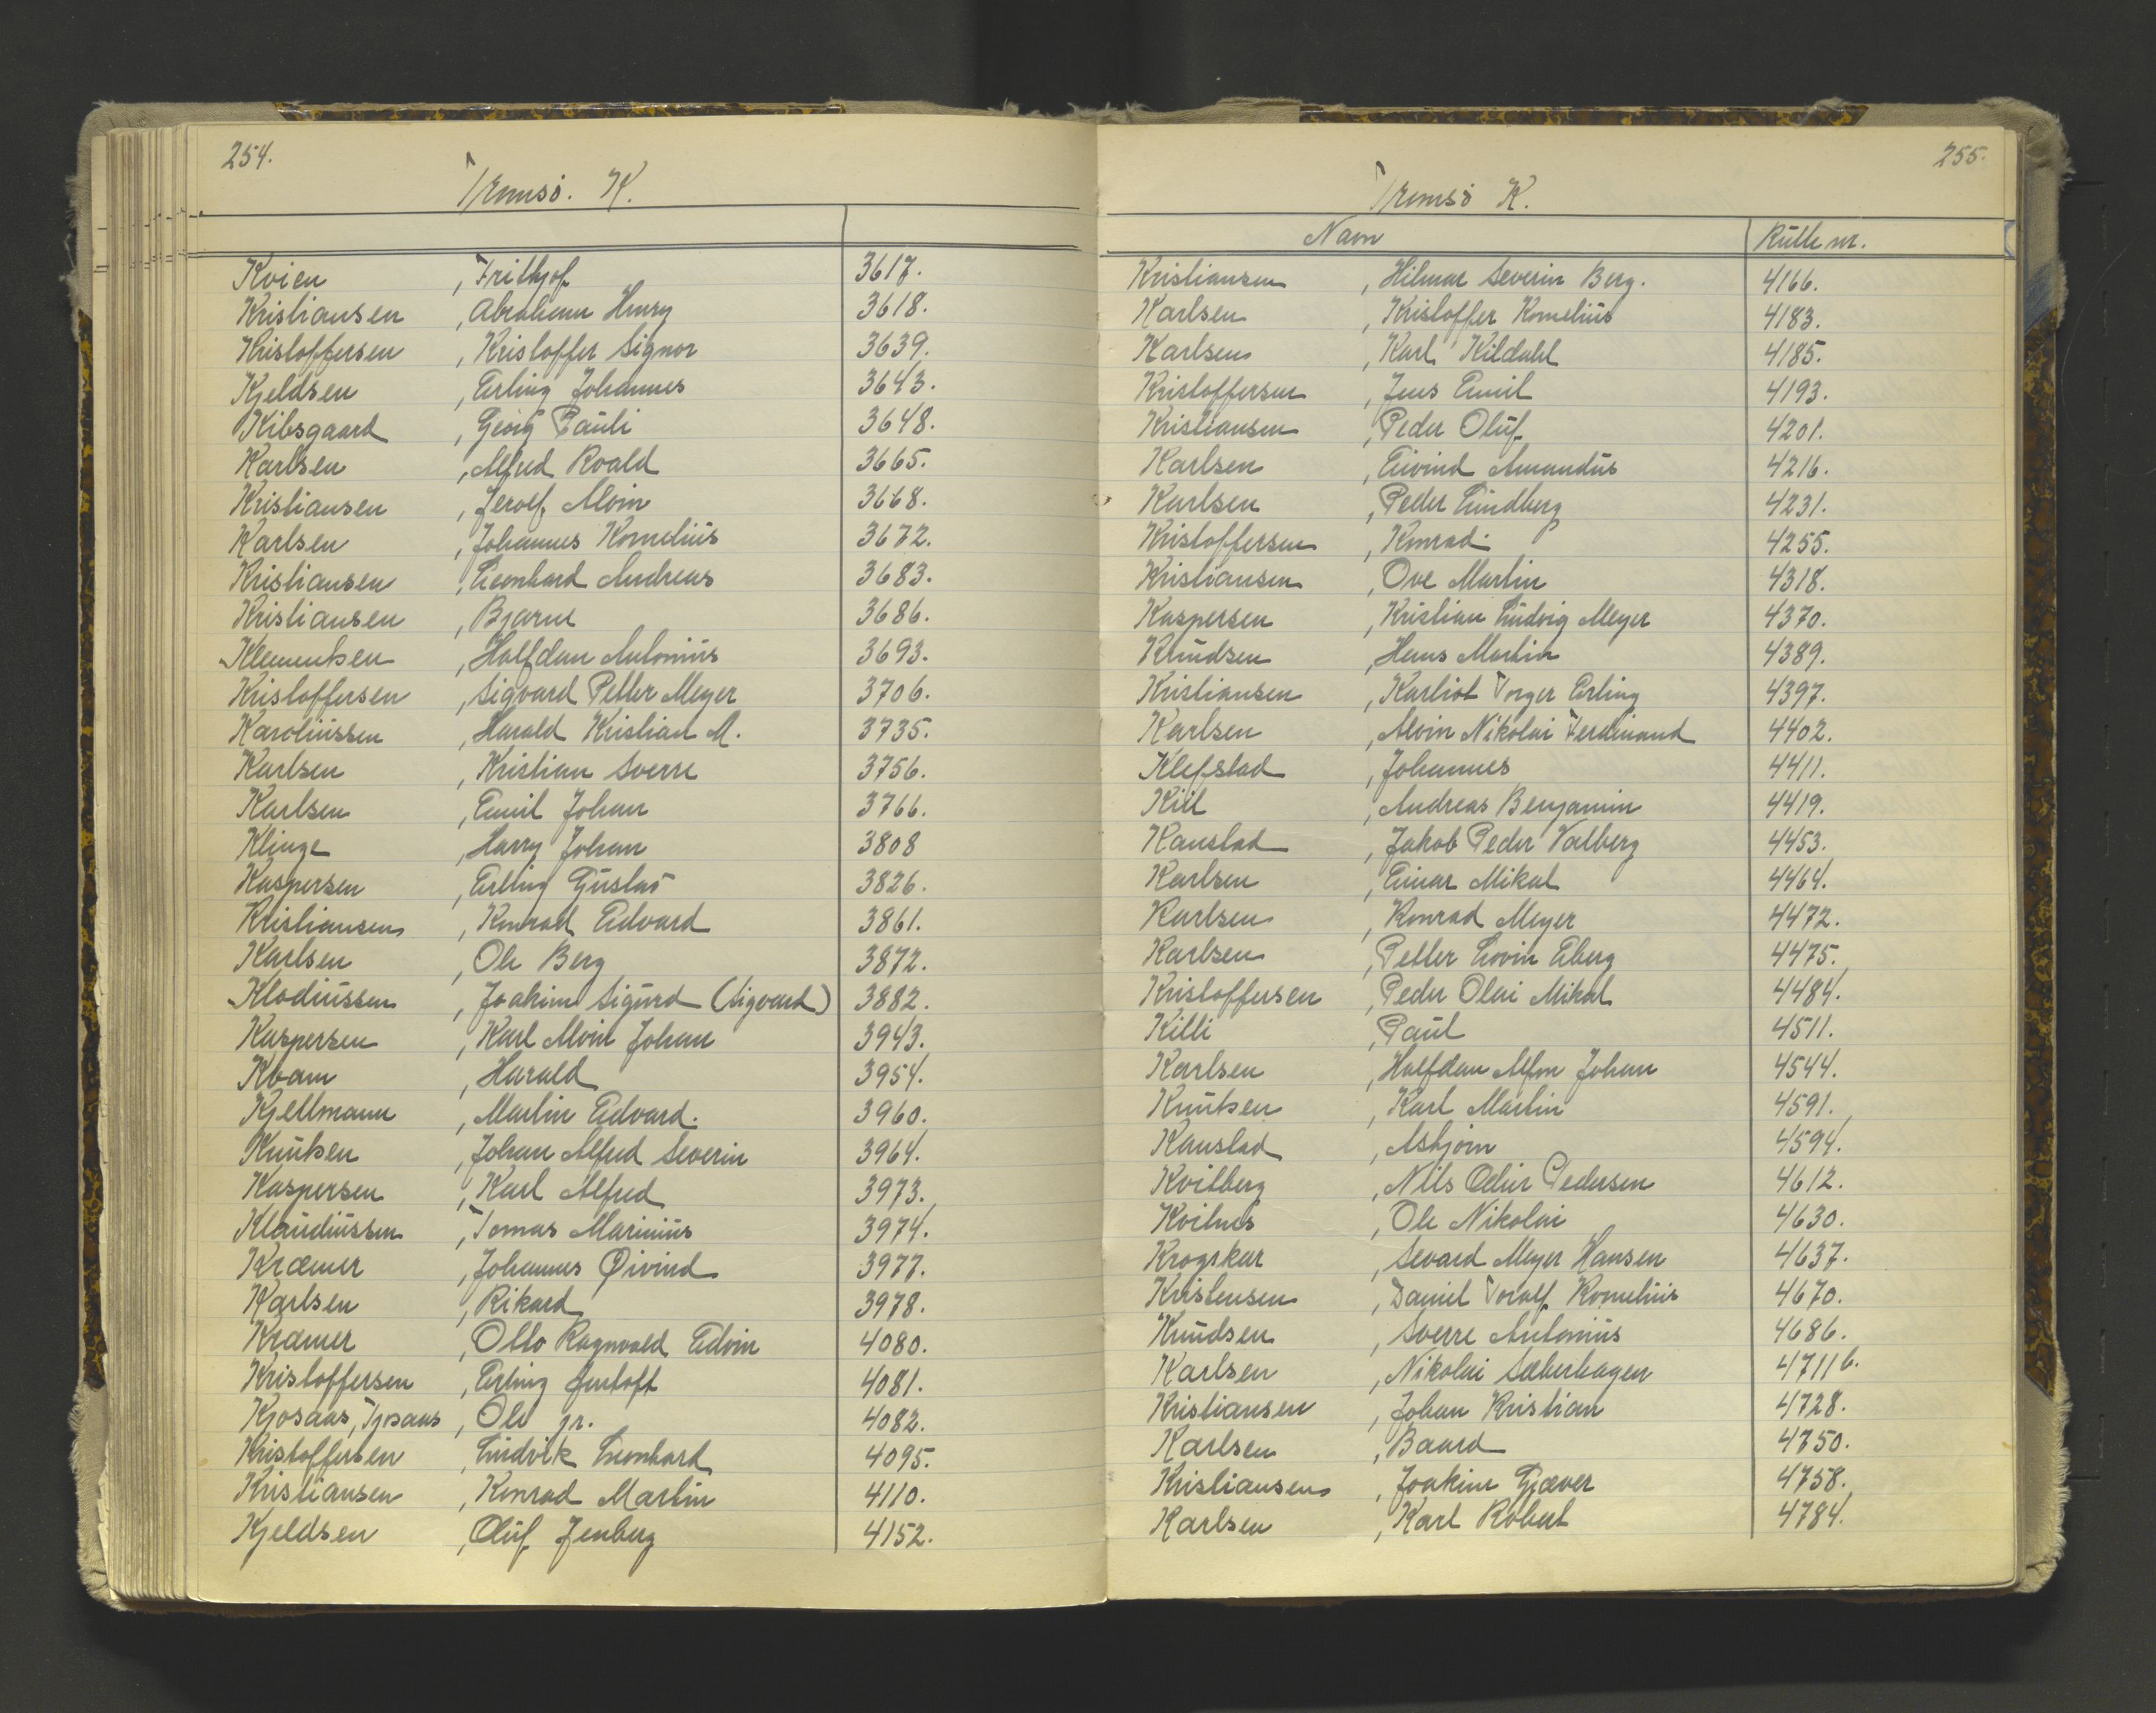 254.
Tromsö. K.
Kvien, Frithjof 3617.
Kristiansen, Abraham Henry 3618.
Kristoffersen, Kristoffer Signor 3639.
Kjeldsen, Erling Johannes 3643.
Kibsgaard, Georg Pauli 3648.
Karlsen, Alfred Roald 3665.
Kristiansen, Jerolf Alvin 3668.
Karlsen, Johannes Kornelius 3672.
Kristiansen, Leonhard Andreas 3683.
Kristiansen, Bjarne 3686.
Klementsen, Halfdan Antonius 3693.
Kristoffersen, Sigvard Petter Meyer 3706.
Karoliussen, Harald Kristian A. 3735.
Karlsen, Kristian Sverre 3756.
Karlsen, Emil Johan 3766.
Klinge, Harry Johan 3808
Kaspersen, Erling Gustav 3826.
Kristiansen, Konrad Edvard 3861.
Karlsen, Ole Berg 3872.
Klodiussen, Joakim Sigurd (Sigvard) 3882.
Kaspersen, Karl Alvin Johan 3943.
Kvam, Harald 3954.
Kjellmann, Martin Edvard. 3960.
Knutsen, Johan Alfred Severin 3964.
Kaspersen, Karl Alfred 3973.
Klaudiussen, Tomas Marinius 3974.
Kræmer, Johannes Øivind 3977.
Karlsen, Rikard 3978.
Kræmer, Otto Ragnvald Edvin 4080.
Kristoffersen, Erling Jentoft 4081.
Kjosaas, Tjosaas, Ole jr. 4082.
Kristoffersen, Ludvik Leonhard 4095.
Kristiansen, Konrad Martin 4110.
Kjeldsen, Oluf Jenberg 4152.
255.
Tromsö K.
Navn Rulle nr.
Kristiansen, Hilmar Severin Berg. 4166.
Karlsen, Kristoffer Kornelius 4183.
Karlsen, Karl Kildahl 4185.
Kristoffersen, Jens Emil 4193.
Kristiansen, Peder Oluf 4201.
Karlsen, Eivind Amandus 4216.
Karlsen, Peder Lindberg 4231.
Kristoffersen, Konrad 4255.
Kristiansen, Ove Martin 4318.
Kaspersen, Kristian Ludvig Meyer 4370.
Knudsen, Hans Martin 4389.
Kristiansen, Karliot Torger Erling 4397.
Karlsen, Alvin Nikolai Ferdinand 4402.
Klefstad, Johannes 4411.
Kiil, Andreas Benjamin 4419.
Kanstad, Jakob Peder Valberg 4453.
Karlsen, Einar Mikal 4464.
Karlsen, Konrad Meyer 4472.
Karlsen, Petter Lovin Eberg 4475.
Kristoffersen, Peder Olai Mikal 4484.
Killi, Paul 4511.
Karlsen, Halfdan Alfon Johan 4544.
Knutsen, Karl Martin 4591.
Kanstad, Asbjörn 4594.
Kvitberg, Nils Odin Pedersen 4612.
Kvitnes, Ole Nikolai 4630.
Krogskar, Sevard Meyer Hansen 4637.
Kristensen, Daniel Toralf Kornelius 4670.
Knudsen, Sverre Antonius 4686.
Karlsen, Nikolai Sæterhagen 4711 b.
Kristiansen, Johan Kristian 4728.
Karlsen, Baard 4750.
Kristiansen, Joakim Gjæver 4758.
Karlsen, Karl Robert 4784.